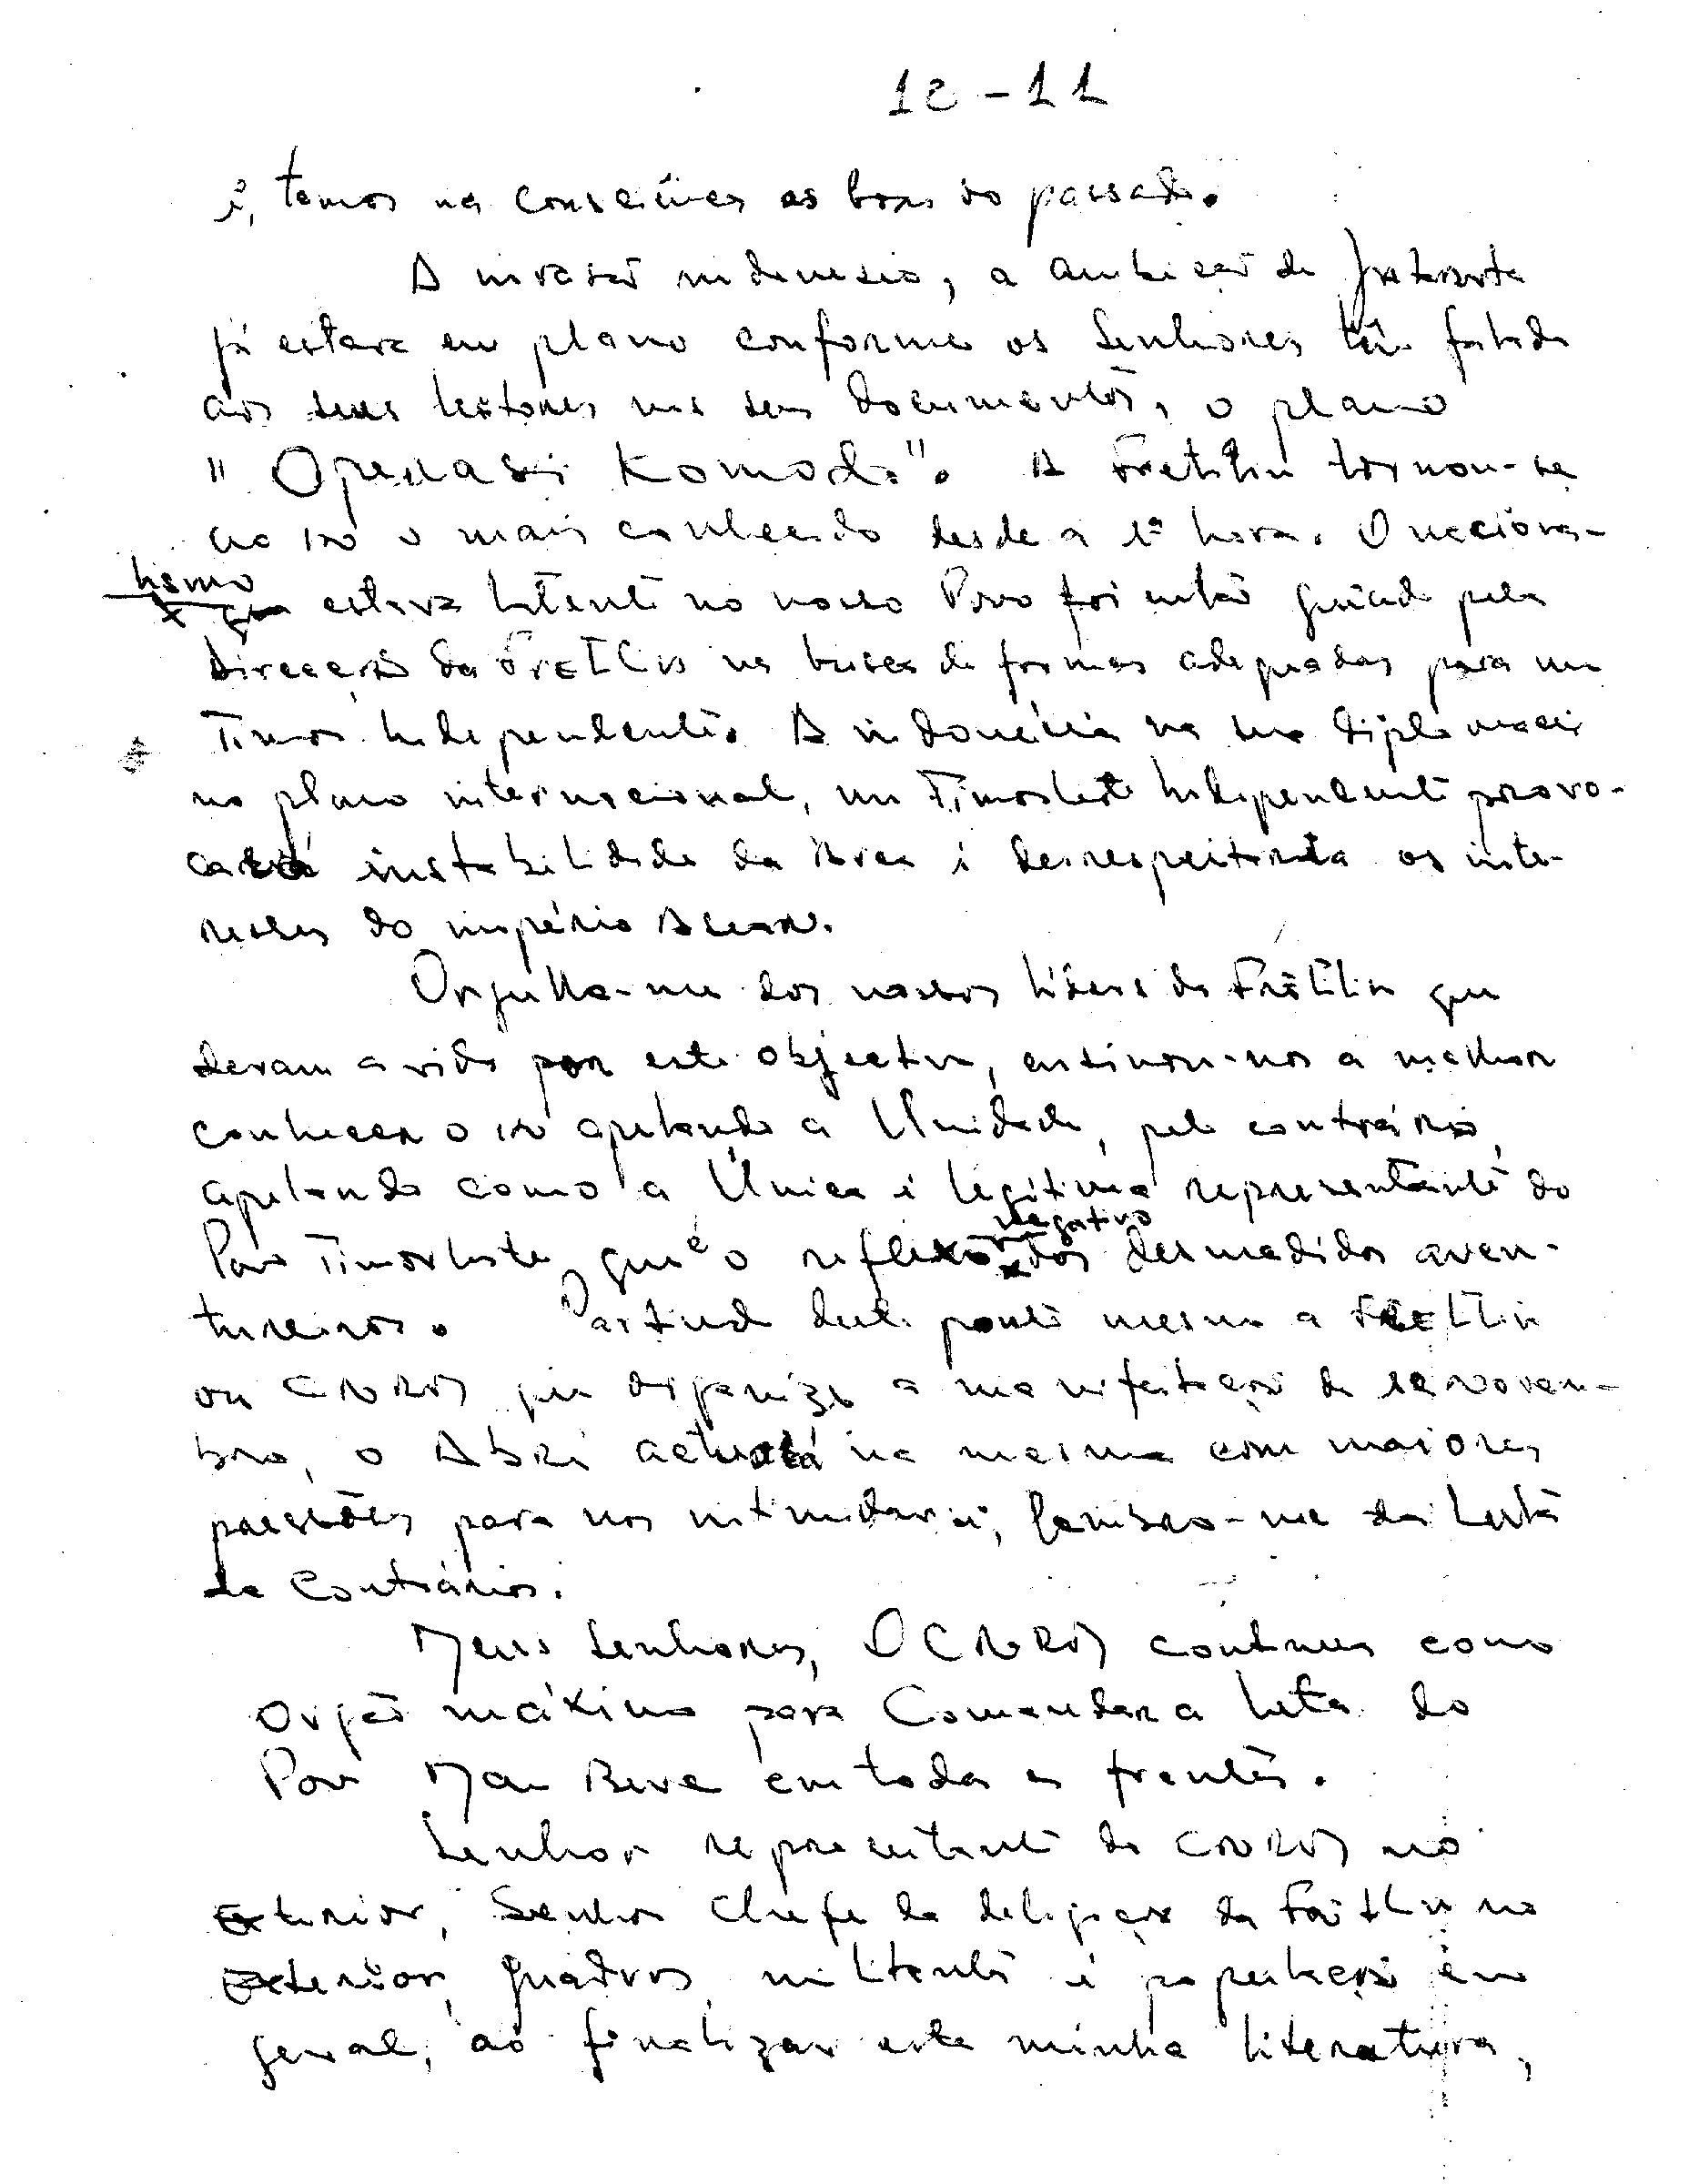 12-11
é, temos na consciência as boas do passado.
A invasão indonésia, a ambição de Jakarta
já estava em plano conforme os Senhores têm falado
aos seus leitores nos seus documentos, o plano
" Operasi Komodo". A Fretilin tornou-se
no IN o mais conhecido desde a 1ª hora. O naciona-
lismo estava latente no nosso Povo foi então guiado pela
Direcção da Fretilin na busca de formas adequadas para um
Timor Independente. A indonésia na sua diplomacia
no plano internacional, um Timorleste Independente provo-
cará instabilidade da área e desrespeitará os inte-
resses do império Asean.
Orgulho-me dos nossos líderes da Fretilin que
deram a vida por este objectivo, ensinou-nos a melhor
conhecer o IN apelando a Unidade, pelo contrário,
apelando como a Única e legítima representante do
Povo Timorleste, que é o reflexo negativo dos desmedidos aven-
tureiros. Partindo deste ponto mesmo a Fretilin
ou CNRM que organize a manifestação de 12 novem-
bro, o Abri actuará na mesma com maiores
pressões para nos intimidar e, lembro-me da Luta
de Contrários.
Meus Senhores, O CNRM continua como
Orgão máximo para Comandar a luta do
Povo Mau Bere em todas as frentes.
Senhor representante do CNRM no
Exterior, Senhor Chefe da delegação da Fretilin no
Exterior, quadros, militantes e população em
geral, ao finalizar esta minha literatura,